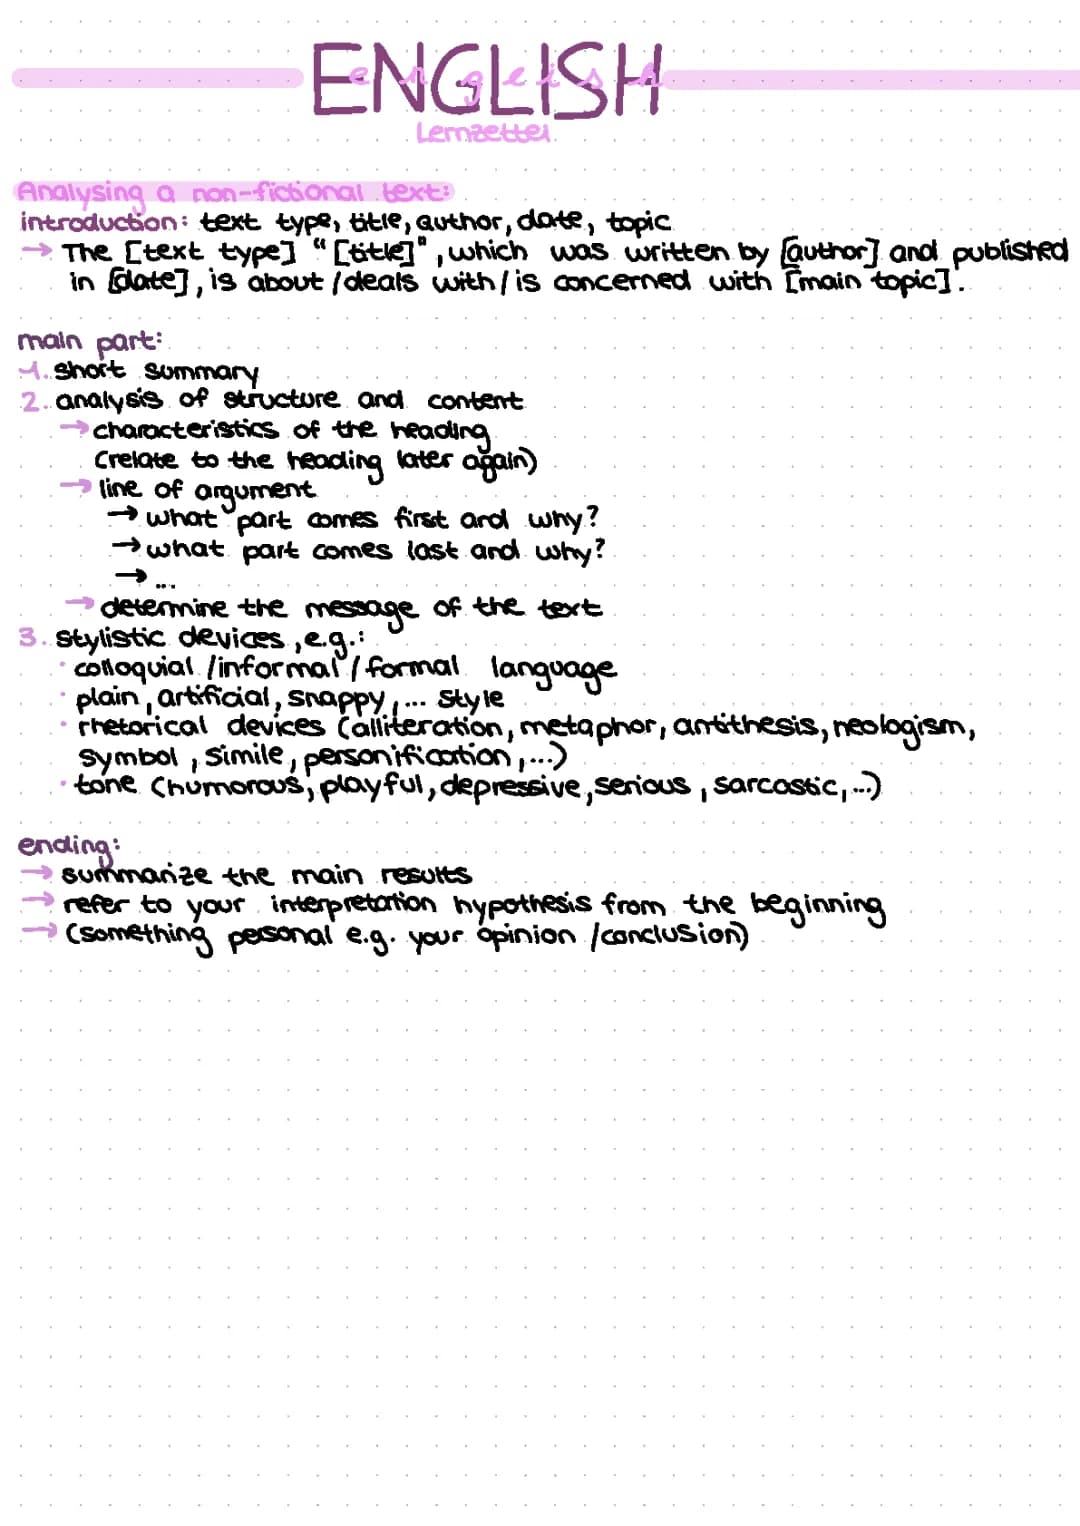 ENGLISH
english
Lernzettel
Analysing a non-fictional text:
introduction: text type, title, author, date, topic
→ The [text type] "[title]", which was written by [author] and published
in [date], is about /deals with/ is concerned with [main topic].
main part:
1. short summary
2. analysis of structure and content
→ characteristics of the heading
(relate to the heading later again)
→ line of argument
→ what part comes first and why?
→ what part comes last and why?
→ ...
→ determine the message of the text
3. stylistic devices, e.g.:
· colloquial /informal / formal language
· plain, artificial, snappy, ... style
· rhetorical devices (alliteration, metaphor, antithesis, neologism,
symbol, simile, personification, ...)
· tone (humorous, playful, depressive, serious, sarcastic, ...)
ending:
→ summarize the main results
→ refer to your interpretation hypothesis from the beginning
→ (something personal e.g. your opinion /conclusion)